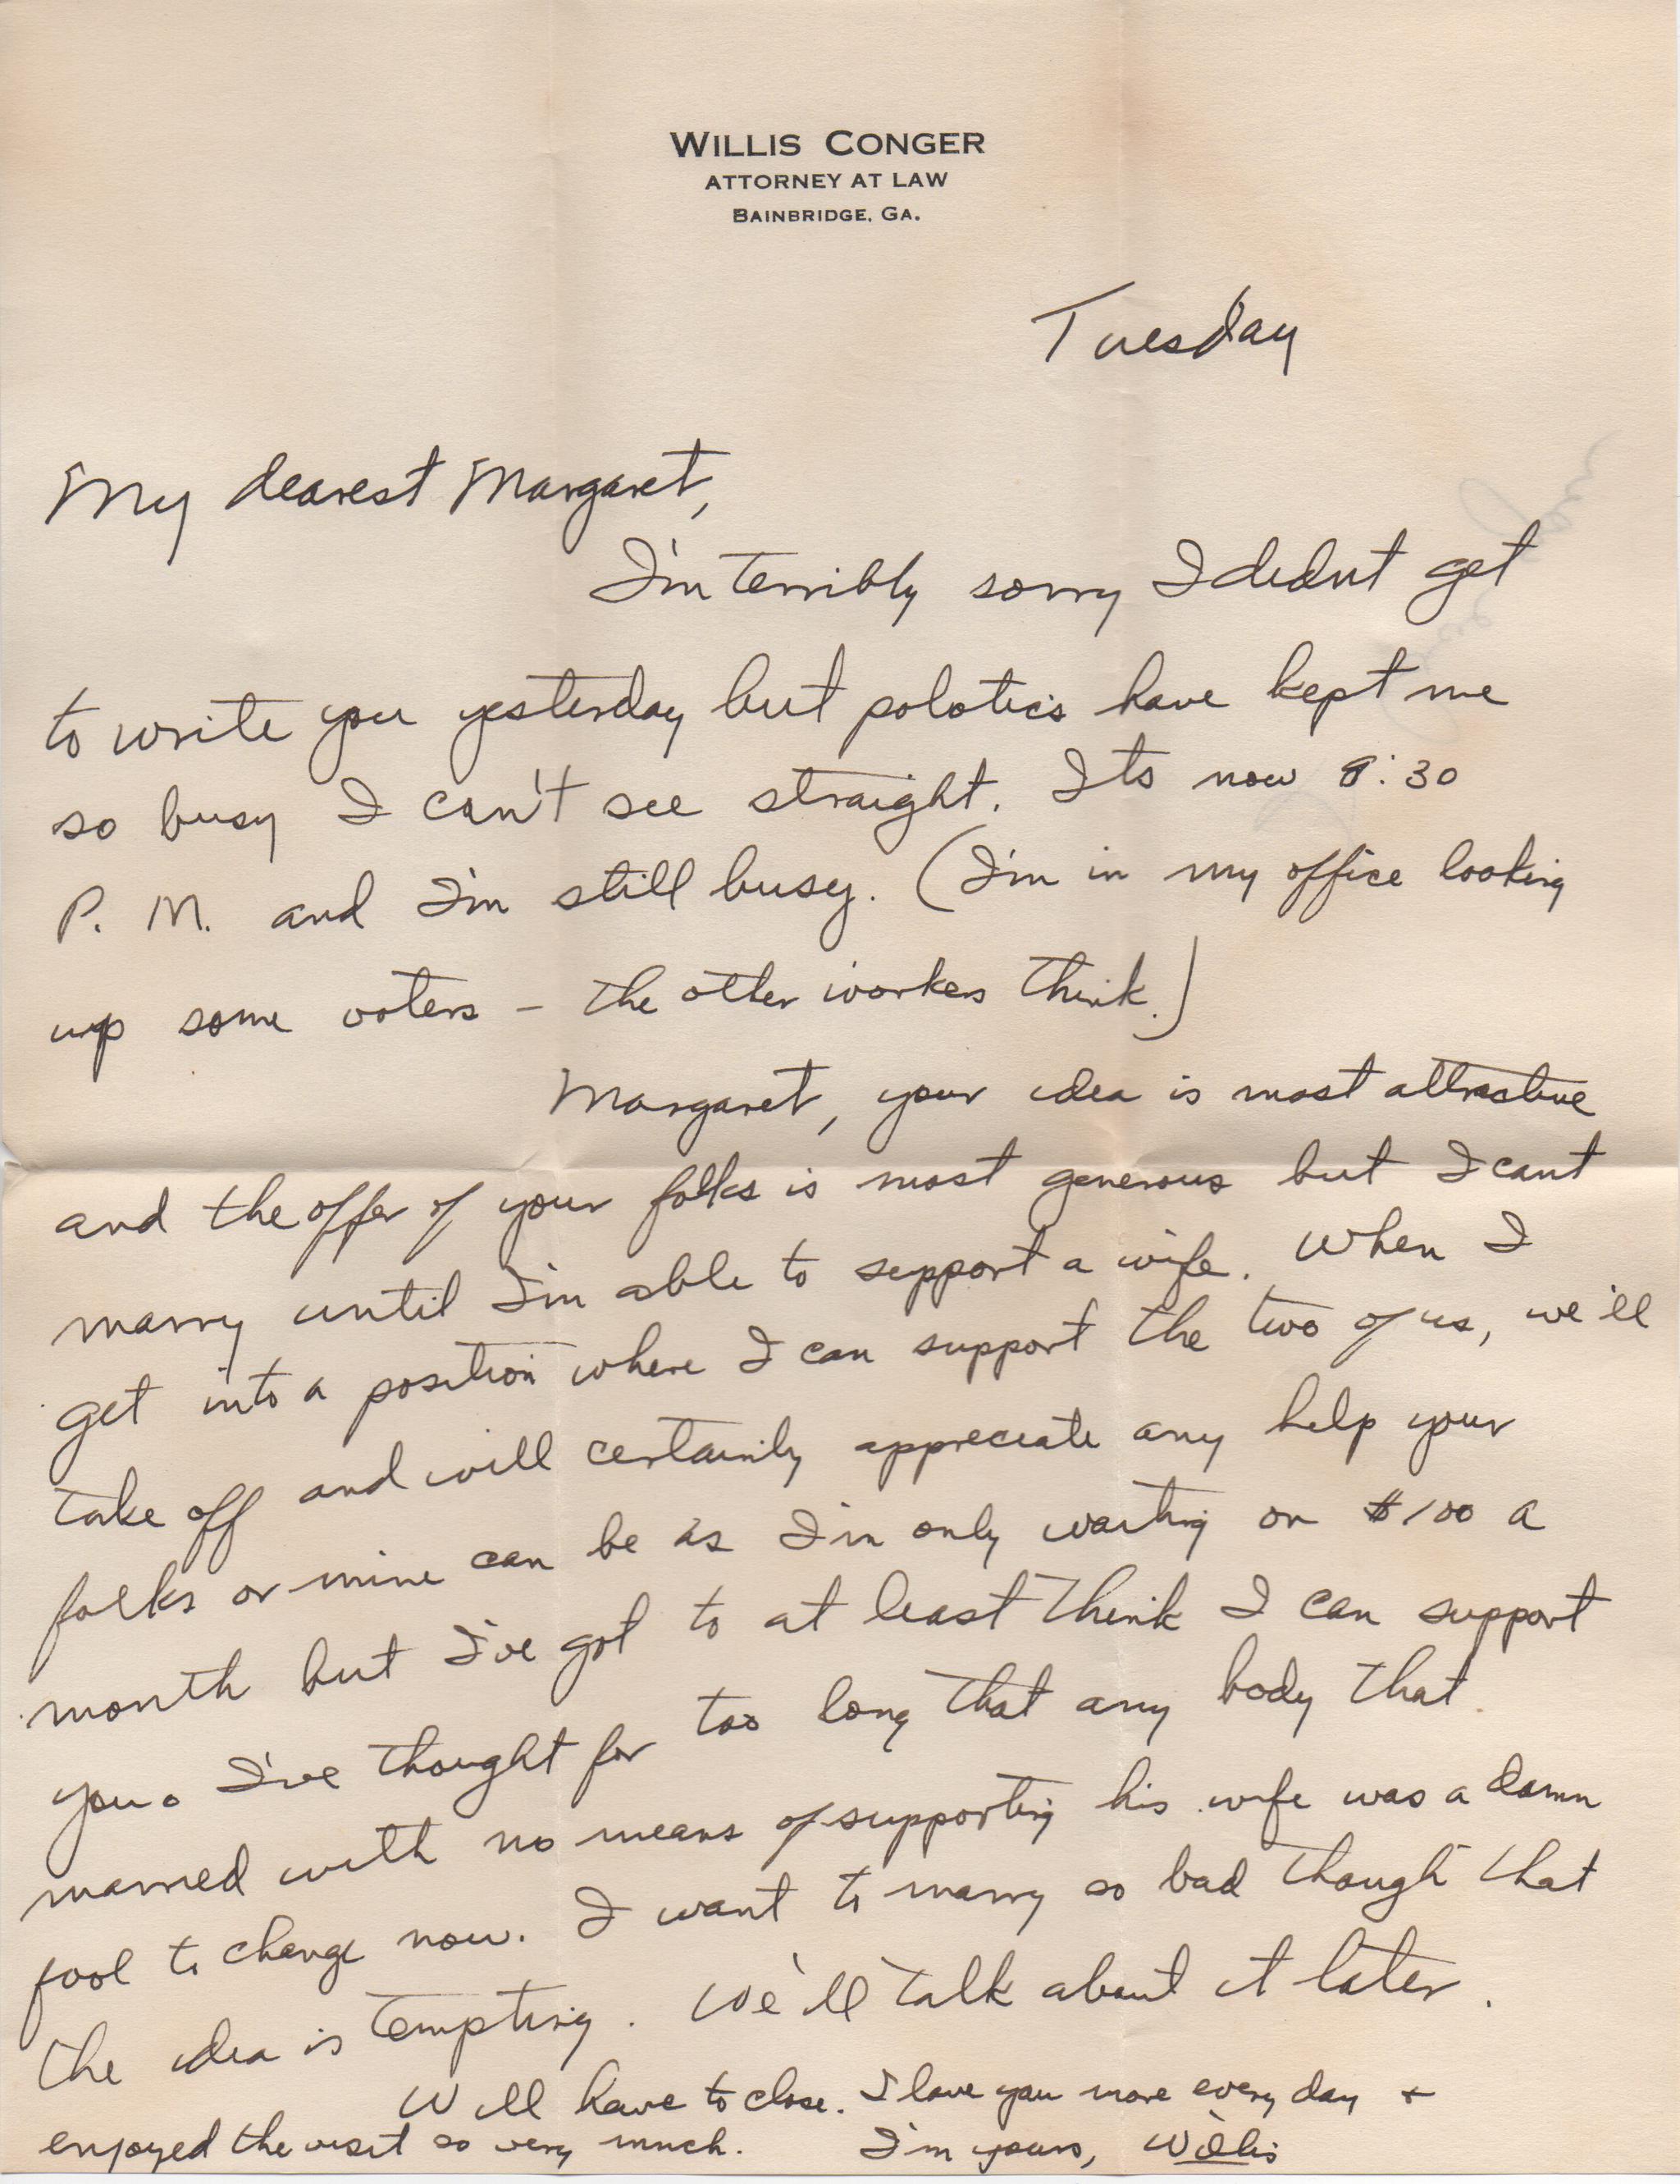 WILLIS CONGER
ATTORNEY AT LAW
BAINBRIDGE, GA.
Tuesday
My dearest Margaret,
I'm terribly sorry I didnt get
to write you yesterday but polotics have kept me
so busy I can't see straight. Its now 9:30
P. M. and I'm still busy. (I'm in my office looking
up some voters – the other workers think.)
Margaret, your idea is most attractive
and the offer of your folks is most generous but I cant
marry until I'm able to support a wife. When I
get into a position where I can support the two of us, we'll
take off and will certainly appreciate any help your
folks or mine can be as I'm only waiting on $100 a
month but I've got to at least think I can support
you. I've thought for too long that any body that
married with no means of supporting his wife was a damn
fool to change now. I want to marry so bad though that
the idea is tempting. We'll talk about it later.
Will have to close. I love you more every day +
enjoyed the visit so very much. I'm yours, Willis